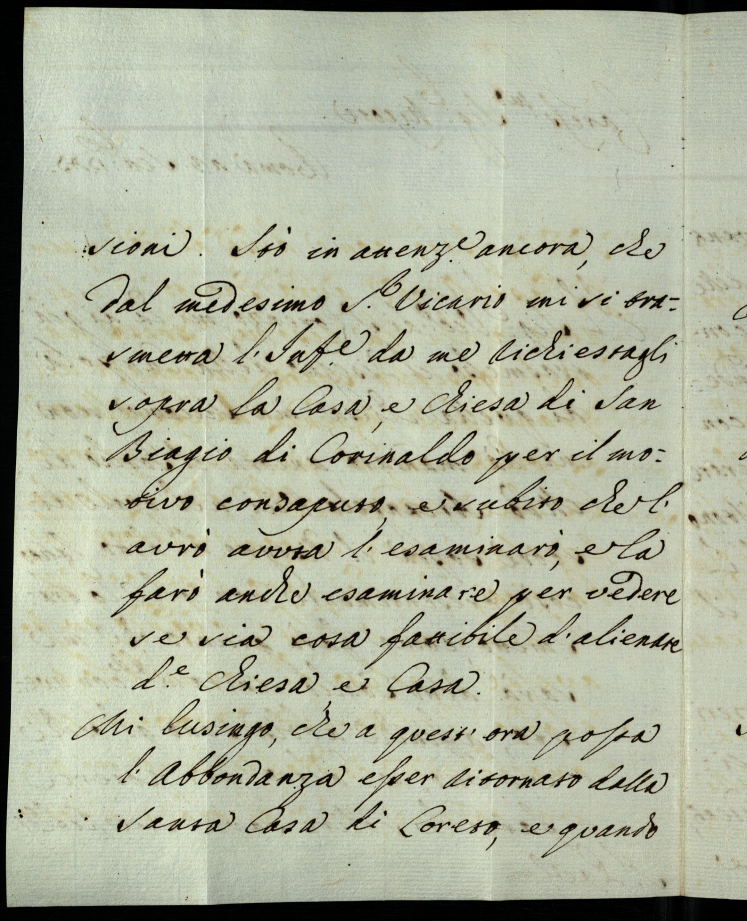 sioni. Stò in attenz.e ancora, che
dal medesimo S.r Vicario mi si tra=
smetta l'Inf.e da me richiestagli
sopra la Casa, e Chiesa di San
Biagio di Corinaldo per il mo=
tivo consaputo, e subito che l'
avrò avuta l'esaminarò, e la
farò anche esaminare per vedere
se sia cosa fattibile d'alienare
d.e Chiesa, e Casa.
Mi lusingo, che a quest'ora possa
l'Abbondanza esser ritornato dalla
Santa Casa di Loreto, e quando